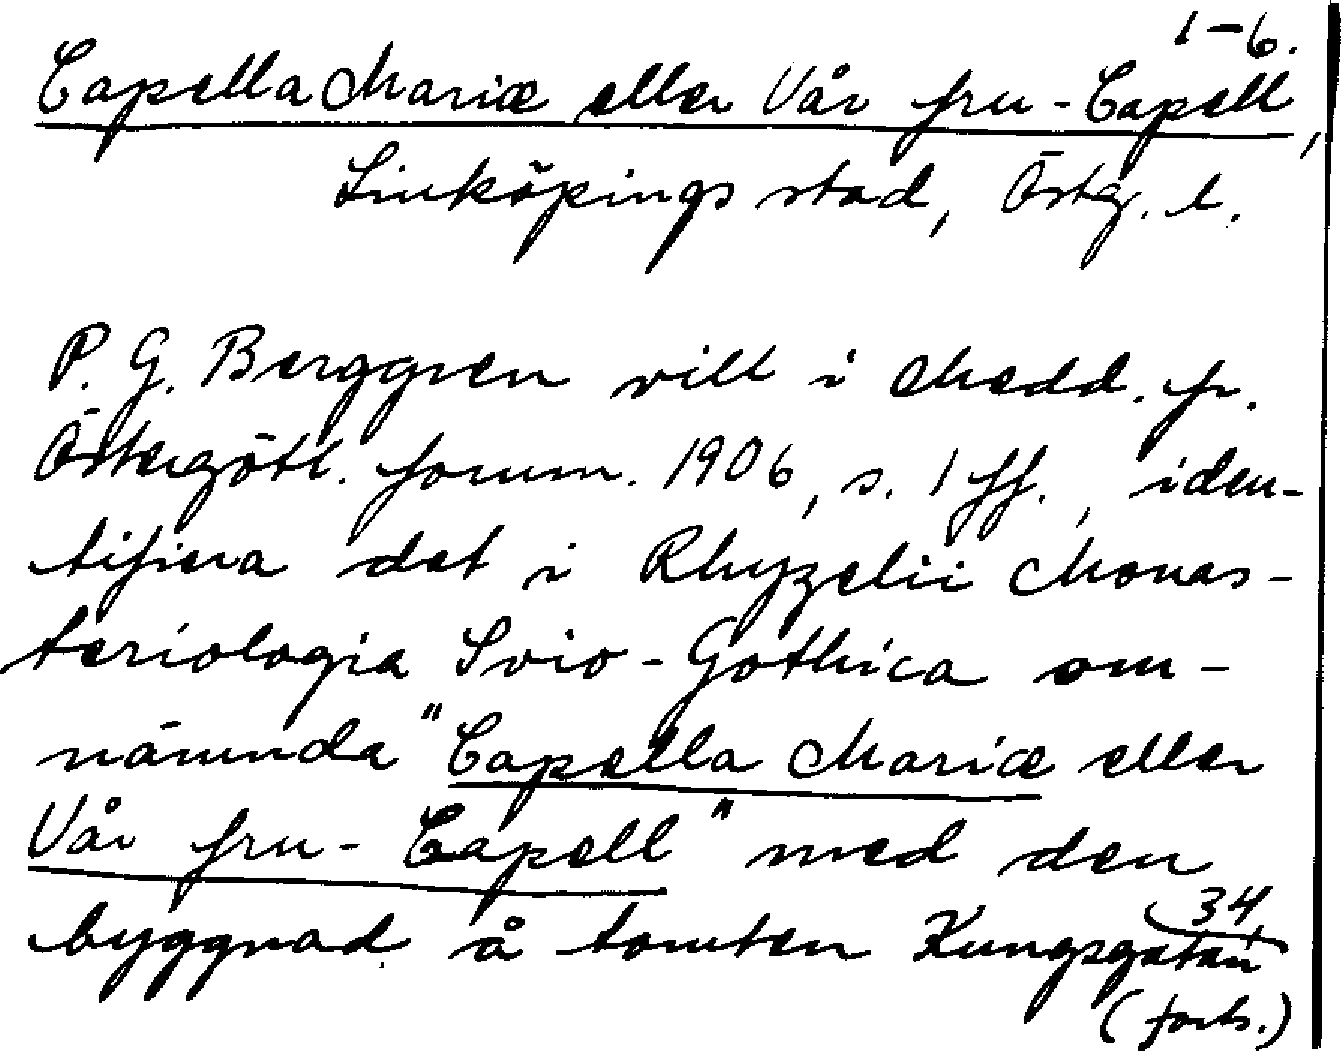 1-6.
Capella Mariæ eller Vår fru-Capell,
Linköpings stad, Östg. l.
P. G. Berggren vill i Medd. fr.
Östergötl. fornm. 1906, s. 1 ff., iden-
tifiera det i Rhyzelii Monas-
teriologia Svio-Gothica om-
nämnda "Capella Mariæ eller
Vår fru-Capell" med den
byggnad å tomten Kungsgatan 34,
(forts.)